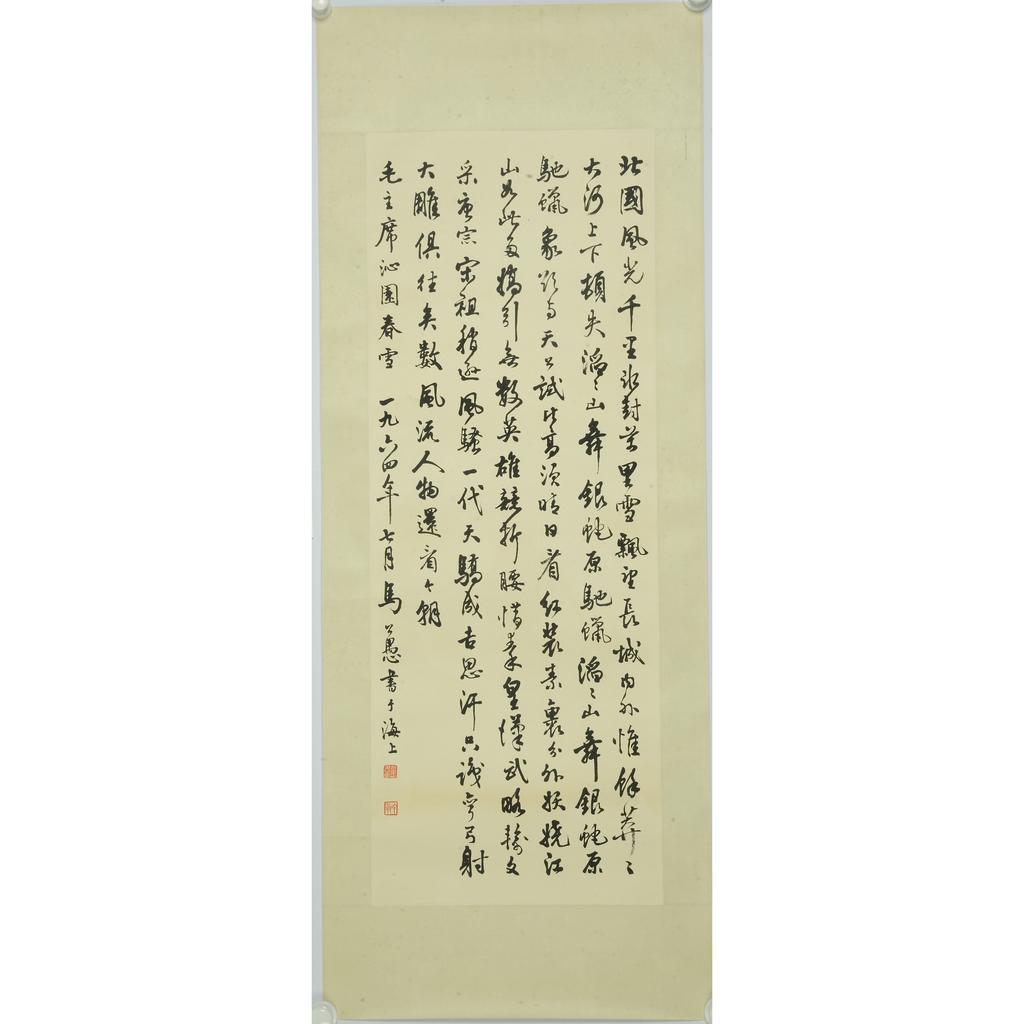 北國風光千里冰封萬里雪飄望長城內外惟餘莽〻
大河上下頓失滔〻山舞銀蛇原馳蠟滔〻山舞銀蛇原
馳蠟象欲与天公試比高須晴日看紅裝素裹分外妖嬈江
山如此多嬌引無數英雄競折腰惜秦皇漢武略輸文
采唐宗宋祖稍遜風騷一代天驕成吉思汗只識彎弓射
大雕俱往矣數風流人物還看今朝
毛主席沁園春雪 一九六四年七月馬公愚書于海上